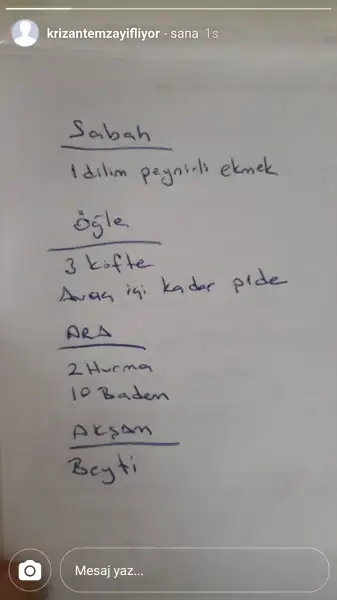 krizantemzayifliyor - sana 1s
Sabah
1 dilim peynirli ekmek
Öğle
3 köfte
Avuç içi kadar pide
ARA
2 Hurma
10 Badem
Akşam
Beyti
Mesaj yaz...